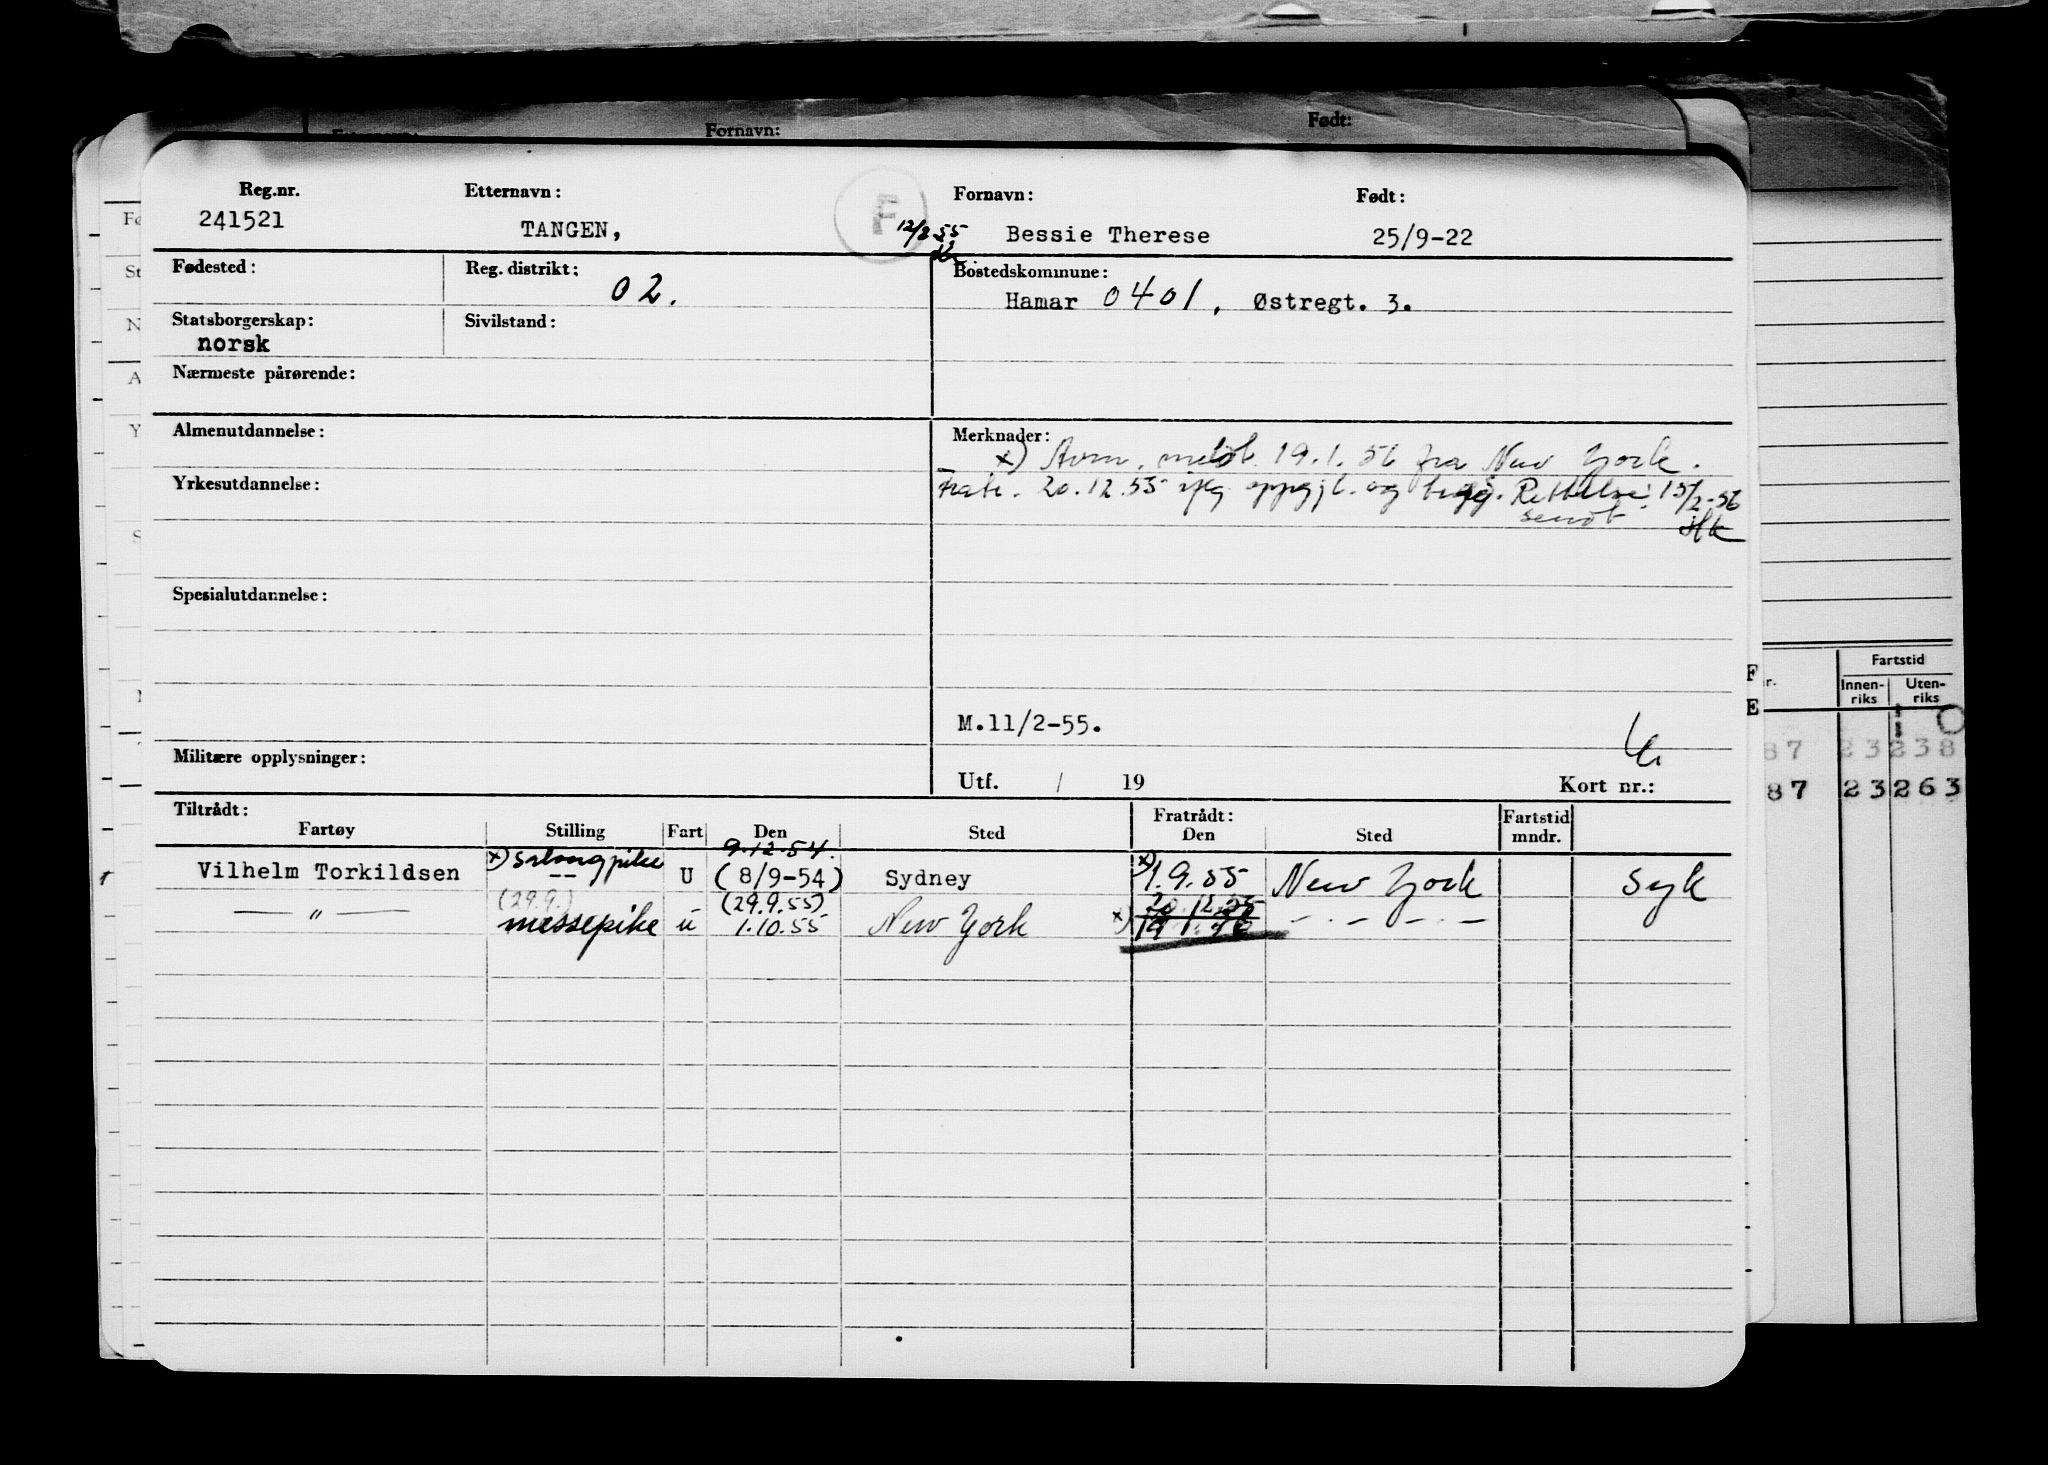 Fornavn: Født:
Reg.nr. Etternavn: Fornavn: Født:
241521 TANGEN, F 12/2 55 Bessie Therese 25/9-22
Fødested: Reg. distrikt: 02. Bostedskommune:
Hamar 0401, Østregt. 3.
Statsborgerskap: Sivilstand:
norsk
Nærmeste pårørende:
Almenutdannelse: Merknader:
x) Avm. meldt. 19.1.56 fra New York.
Yrkesutdannelse: Fratr. 20.12.55 oppgjt. og Rettelse 15/2-56
sendt
Spesialutdannelse:
M.11/2-55.
Militære opplysninger:
Utf. / 19 Kort nr.:
Tiltrådt: Fratrådt: Fartstid
Fartøy Stilling Fart Den Sted Den Sted mndr.
x) salongpike 9.12.54.
Vilhelm Torkildsen -- U (8/9-54) Sydney x) 1.9.55 New York Syk
(29.9.) (29.9.55) 20.12.55
— " — messepike u 1.10.55 New York x) 19 1 56 — . — . — . —
Fartstid
Innen- Uten-
riks riks
87 23 238
87 23 263